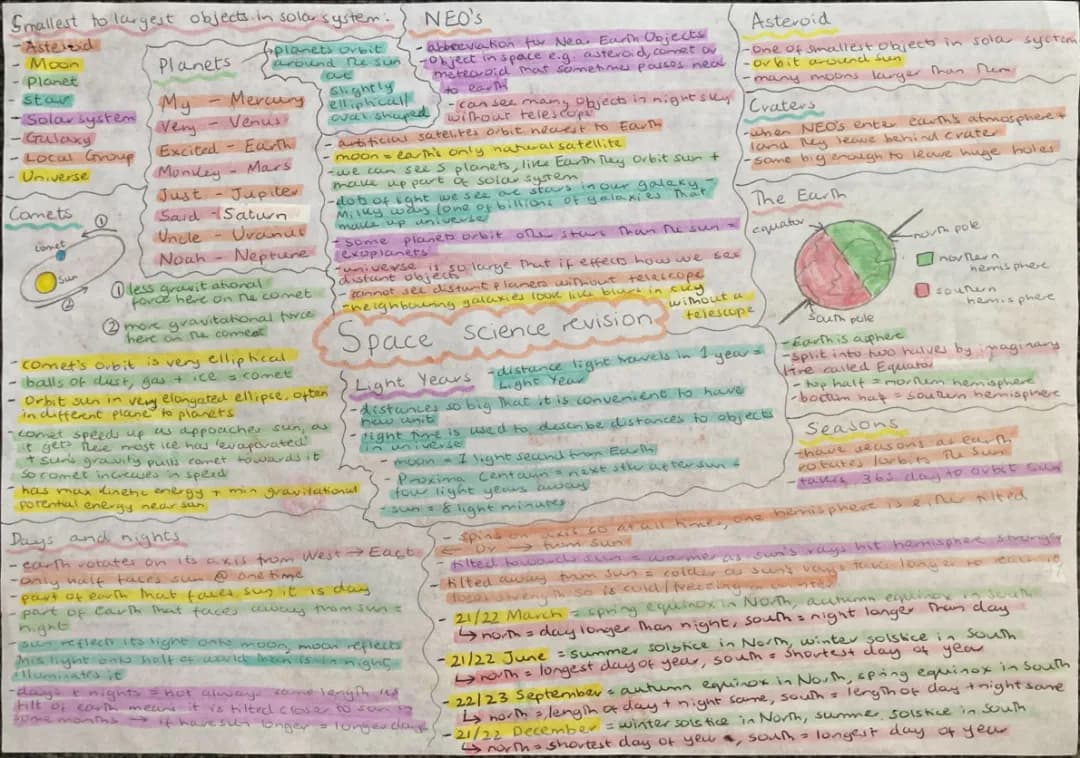 Smallest to largest objects in solar system:
- Asteroid
- Moon
- Planet
- Star
- Solar system
- Galaxy
- Local Group
- Universe
Planets
planets orbit
around the sun
at
slightly
elliptical/
oval shaped
My - Mercury
Very - Venus
Excited - Earth
Monkey - Mars
Just - Jupiter
Said - Saturn
Uncle - Uranus
Noah - Neptune
Comets
①
comet
Sun
②
① less gravitational
force here on the comet
② more gravitational force
here on the comet
- comet's orbit is very elliptical
- balls of dust, gas + ice = comet
- Orbit sun in very elongated ellipse, often
in different plane to planets
- comet speeds up as approaches sun, as
it gets there most ice has 'evaporated'
+ sun's gravity pulls comet towards it
so comet increases in speed
- has max kinetic energy + min gravitational
potential energy near sun
NEO's
- abbreviation for Near Earth Objects
- Object in space e.g. asteroid, comet or
meteoroid that sometimes passes near
to earth
- can see many objects in night sky
without telescope
- artificial satellites orbit nearest to Earth
- moon = earth's only natural satellite
- we can see 5 planets, like Earth they orbit sun +
make up part of solar system
- dots of light we see are stars in our galaxy -
Milky way (one of billions of galaxies that
make up universe)
- some planets orbit other stars than the sun =
exoplanets
- universe is so large that it effects how we see
distant objects
- cannot see distant planets without telescope
- neighbouring galaxies look like blurs in city
without a
telescope
Space science revision
Light Years
- distance light travels in 1 year =
Light Year
- distances so big that it is convenient to have
new unit
- light time is used to describe distances to objects
in universe
- moon = 1 light second from Earth
- Proxima Centauri = next star after sun -
four light years away
- sun = 8 light minutes
Asteroid
- one of smallest objects in solar system
- orbit around sun
- many moons larger than them
Craters
- when NEO's enter earth's atmosphere +
land they leave behind crater
- some big enough to leave huge holes
The Earth
equator
north pole
northern
hemisphere
southern
hemisphere
south pole
- Earth is a sphere
- split into two halves by imaginary
line called Equator
- top half = northern hemisphere
- bottom half = southern hemisphere
Seasons
- have seasons as earth
rotates/orbits the sun
- takes 365 day to orbit sun
- spins on axis so at all times, one hemisphere is either tilted
← or → from sun
- tilted towards sun = warmer as sun's rays hit hemisphere stronger
- tilted away from sun = colder as sun's rays take longer to
loses strength so is cold/freezing
- 21/22 March = spring equinox in North, autumn equinox in south
↳ north = day longer than night, south = night longer than day
- 21/22 June = summer solstice in North, winter solstice in South
↳ north = longest day of year, south = shortest day of year
- 22/23 September = autumn equinox in North, spring equinox in South
↳ north = length of day + night same, south = length of day + night same
- 21/22 December = winter solstice in North, summer solstice in South
↳ north = shortest day of year, south = longest day of year
Days and nights
- earth rotates on its axis from West → East
- only half faces sun @ one time
- part of earth that faces sun it is day
- part of Earth that faces away from sun =
night
- sun reflects its light onto moon, moon reflects
this light onto half of world that is in night,
illuminates it
- days + nights = not always same length as
tilt of earth means it is tilted closer to sun in
some months → if have sun longer = longer day